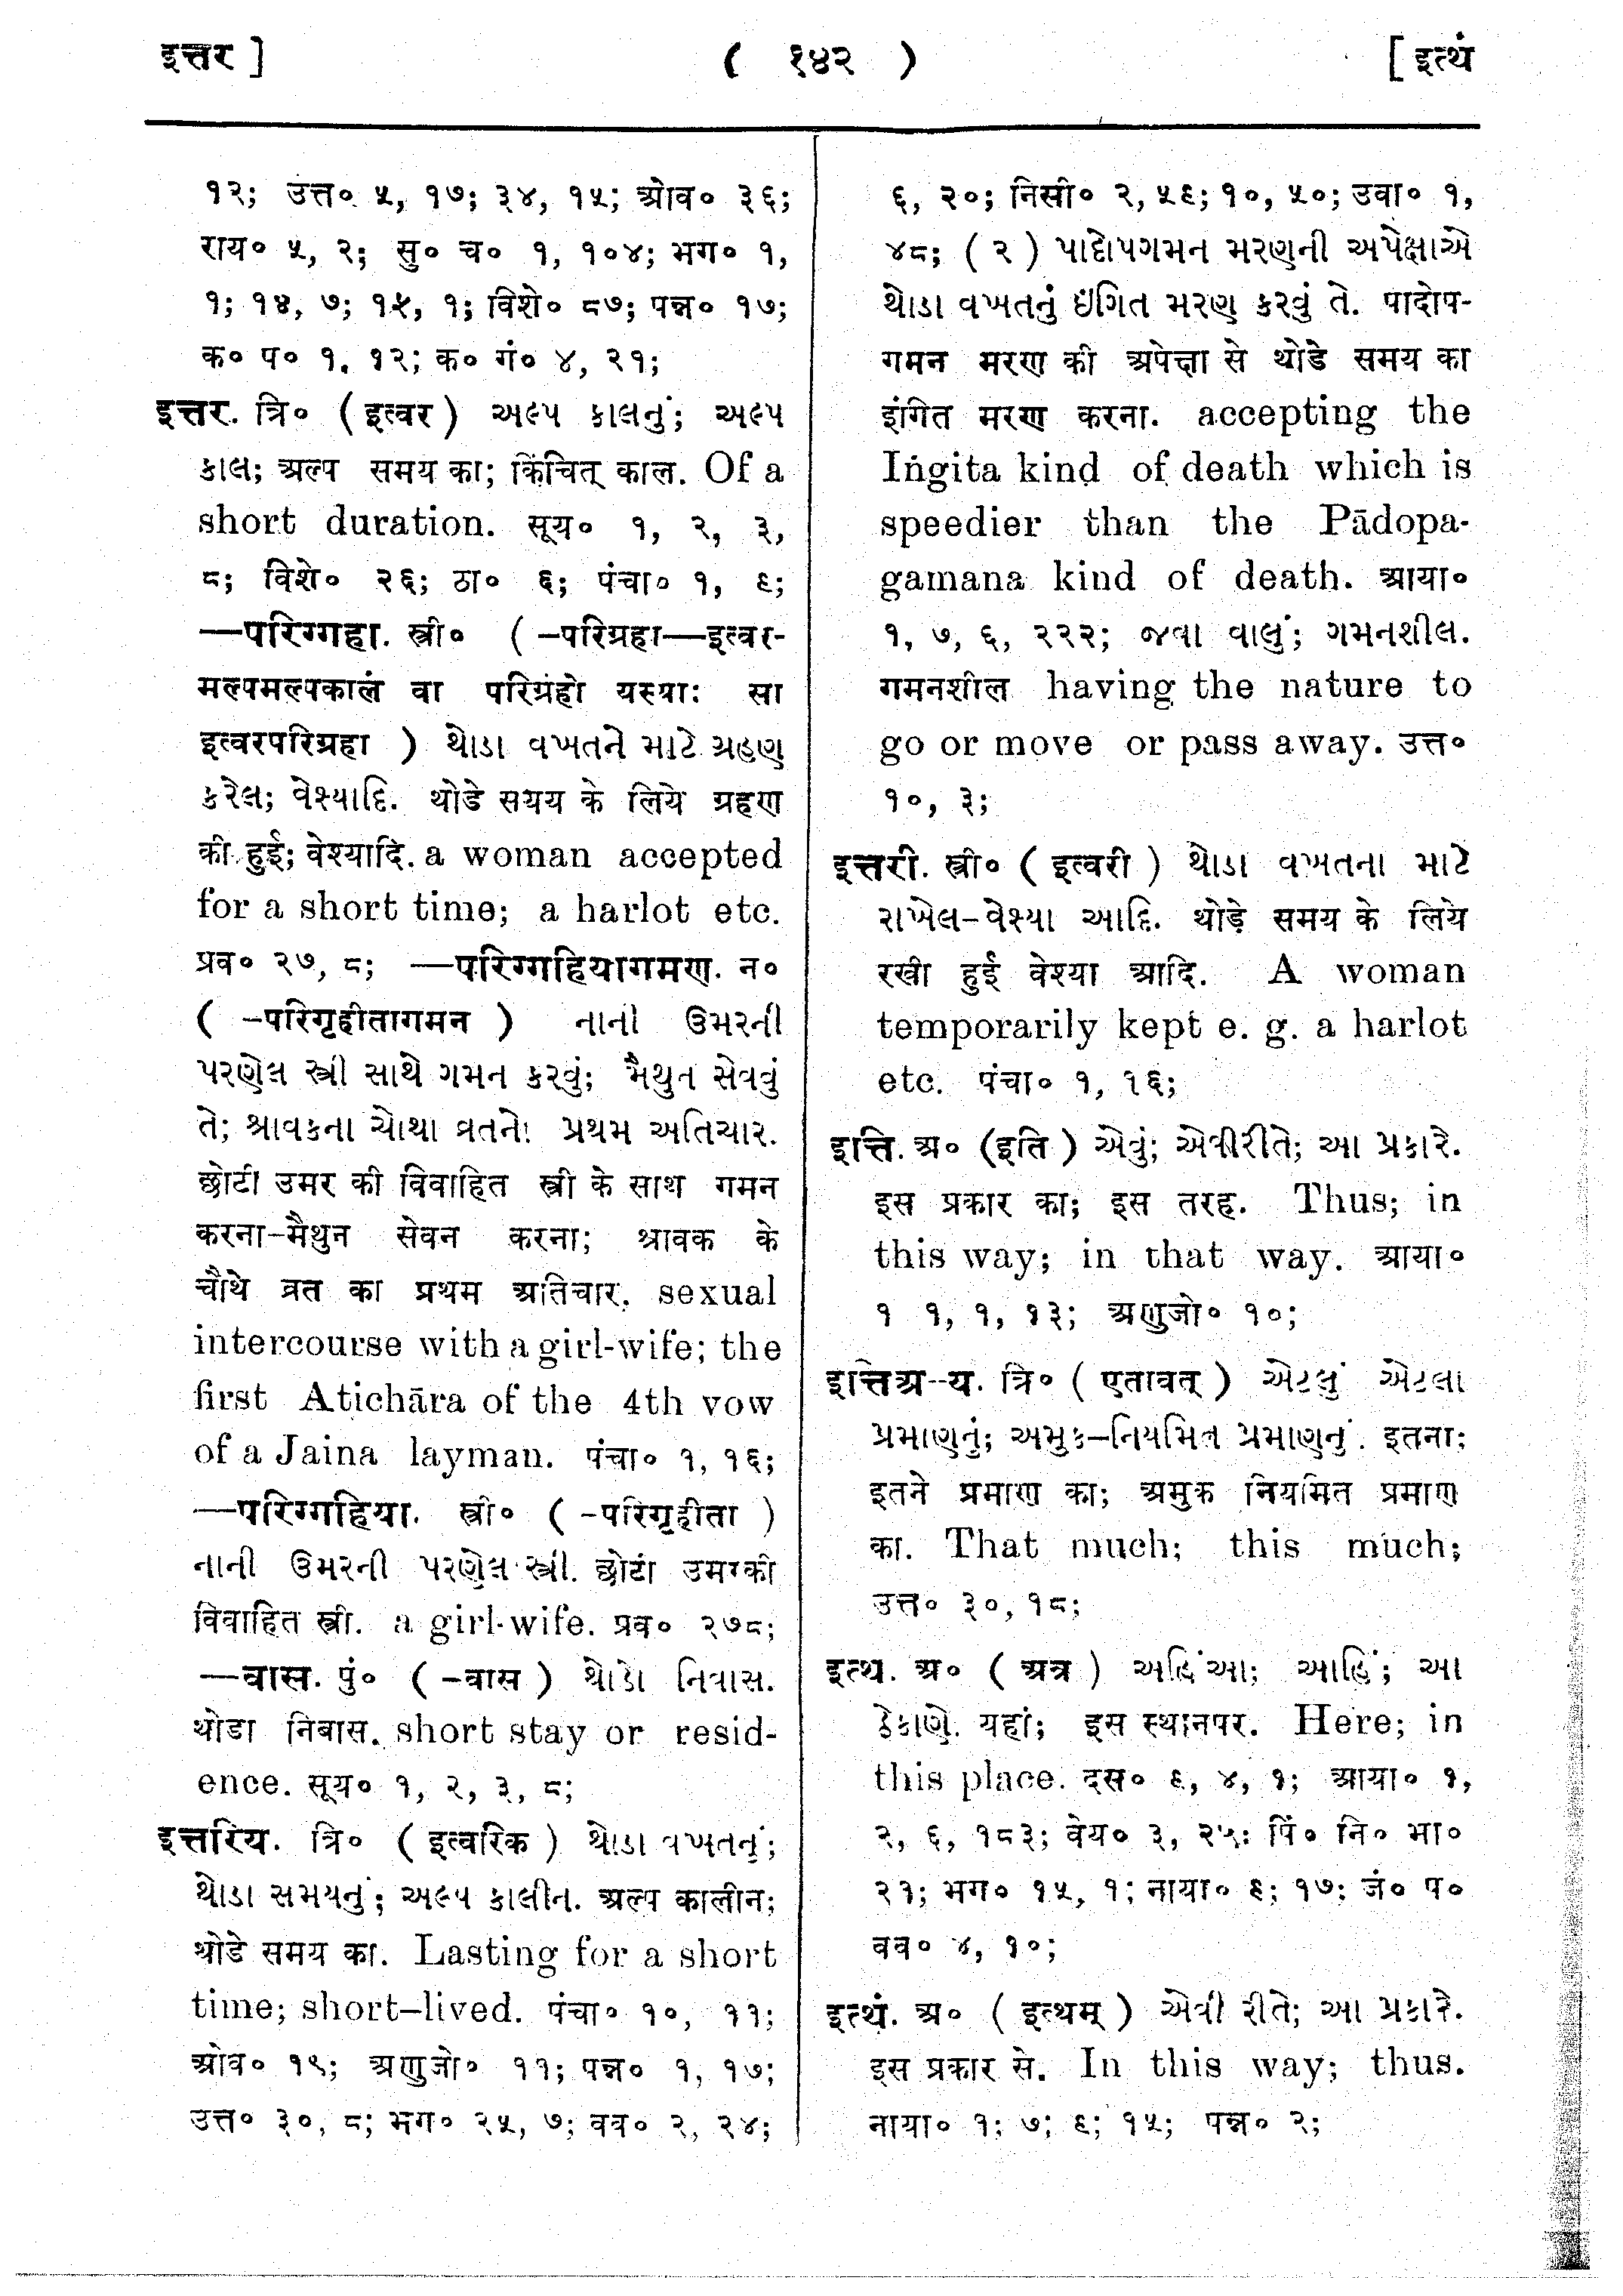 इत्तर ]
( १४२ )
[ इत्थं
१२; उत्त० ५, १७; ३४, १५; ओव० ३६;
राय० ५, २; सु० च० १, १०४; भग० १,
१; १४, ७; १५, १; विशे० ८७; पन्न० १७;
क० प० १, १२; क० गं० ४, २१;
इत्तर. त्रि० ( इत्वर ) અલ્પ કાલનું; અલ્પ
કાલ; अल्प समय का; किंचित् काल. Of a
short duration. सूय० १, २, ३,
८; विशे० २६; ठा० ६; पंचा० १, ६;
—परिग्गहा. स्त्री० ( -परिग्रहा—इत्वर-
मल्पमल्पकालं वा परिग्रहो यस्याः सा
इत्वरपरिग्रहा ) થોડા વખતને માટે ગ્રહણ
કરેલ; વેશ્યાદિ. थोडे सयय के लिये ग्रहण
की हुई; वेश्यादि. a woman accepted
for a short time; a harlot etc.
प्रव० २७, ८; —परिग्गहियागमण. न०
( -परिगृहीतागमन ) નાની ઉમરની
પરણેલ સ્ત્રી સાથે ગમન કરવું; મૈથુન સેવવું
તે; શ્રાવકના ચોથા વ્રતનો પ્રથમ અતિચાર.
छोटी उमर की विवाहित स्त्री के साथ गमन
करना-मैथुन सेवन करना; श्रावक के
चौथे व्रत का प्रथम अतिचार. sexual
intercourse with a girl-wife; the
first Atichāra of the 4th vow
of a Jaina layman. पंचा० १, १६;
—परिग्गहिया. स्त्री० ( -परिगृहीता )
નાની ઉમરની પરણેલ સ્ત્રી. छोटी उमरकी
विवाहित स्त्री. a girl-wife. प्रव० २७८;
—वास. पुं० ( -वास ) થોડો નિવાસ.
थोडा निबास. short stay or resid-
ence. सूय० १, २, ३, ८;
इत्तरिय. त्रि० ( इत्वरिक ) થોડા વખતનું;
થોડા સમયનું; અલ્પ કાલીન. अल्प कालीन;
थोडे समय का. Lasting for a short
time; short-lived. पंचा० १०, ११;
ओव० १९; अणुजो० ११; पन्न० १, १७;
उत्त० ३०, ८; भग० २५, ७; वव० २, २४;
६, २०; निसी० २, ५६; १०, ५०; उवा० १,
४८; ( २ ) પાદોપગમન મરણની અપેક્ષાએ
થોડા વખતનું ઇંગિત મરણ કરવું તે. पादोप-
गमन मरण की अपेक्षा से थोडे समय का
इंगित मरण करना. accepting the
Iṅgita kind of death which is
speedier than the Pādopa-
gamana kind of death. आया०
१, ७, ६, २२२; જવા વાલું; ગમનશીલ.
गमनशील having the nature to
go or move or pass away. उत्त०
१०, ३;
इत्तरी. स्त्री० ( इत्वरी ) થોડા વખતના માટે
રાખેલ-વેશ્યા આદિ. थोड़े समय के लिये
रखी हुई वेश्या आदि. A woman
temporarily kept e. g. a harlot
etc. पंचा० १, १६;
इत्ति. अ० (इति ) એવું; એવીરીતે; આ પ્રકારે.
इस प्रकार का; इस तरह. Thus; in
this way; in that way. आया०
१ १, १, १३; अणुजो० १०;
इत्तिअ--य. त्रि० ( एतावत् ) એટલું એટલા
પ્રમાણનું; અમુક-નિયમિત પ્રમાણનું. इतना;
इतने प्रमाण का; अमुक नियमित प्रमाण
का. That much; this much;
उत्त० ३०, १८;
इत्थ. अ० ( अत्र ) અહિંઆ; આહિં; આ
ઠેકાણે. यहां; इस स्थानपर. Here; in
this place. दस० ६, ४, १; आया० १,
२, ६, १८३; वेय० ३, २५; पिं० नि० भा०
२१; भग० १५, १; नाया० ६; १७; जं० प०
वव० ४, १०;
इत्थं. अ० ( इत्थम् ) એવી રીતે; આ પ્રકારે.
इस प्रकार से. In this way; thus.
नाया० १; ७; ६; १५; पन्न० २;